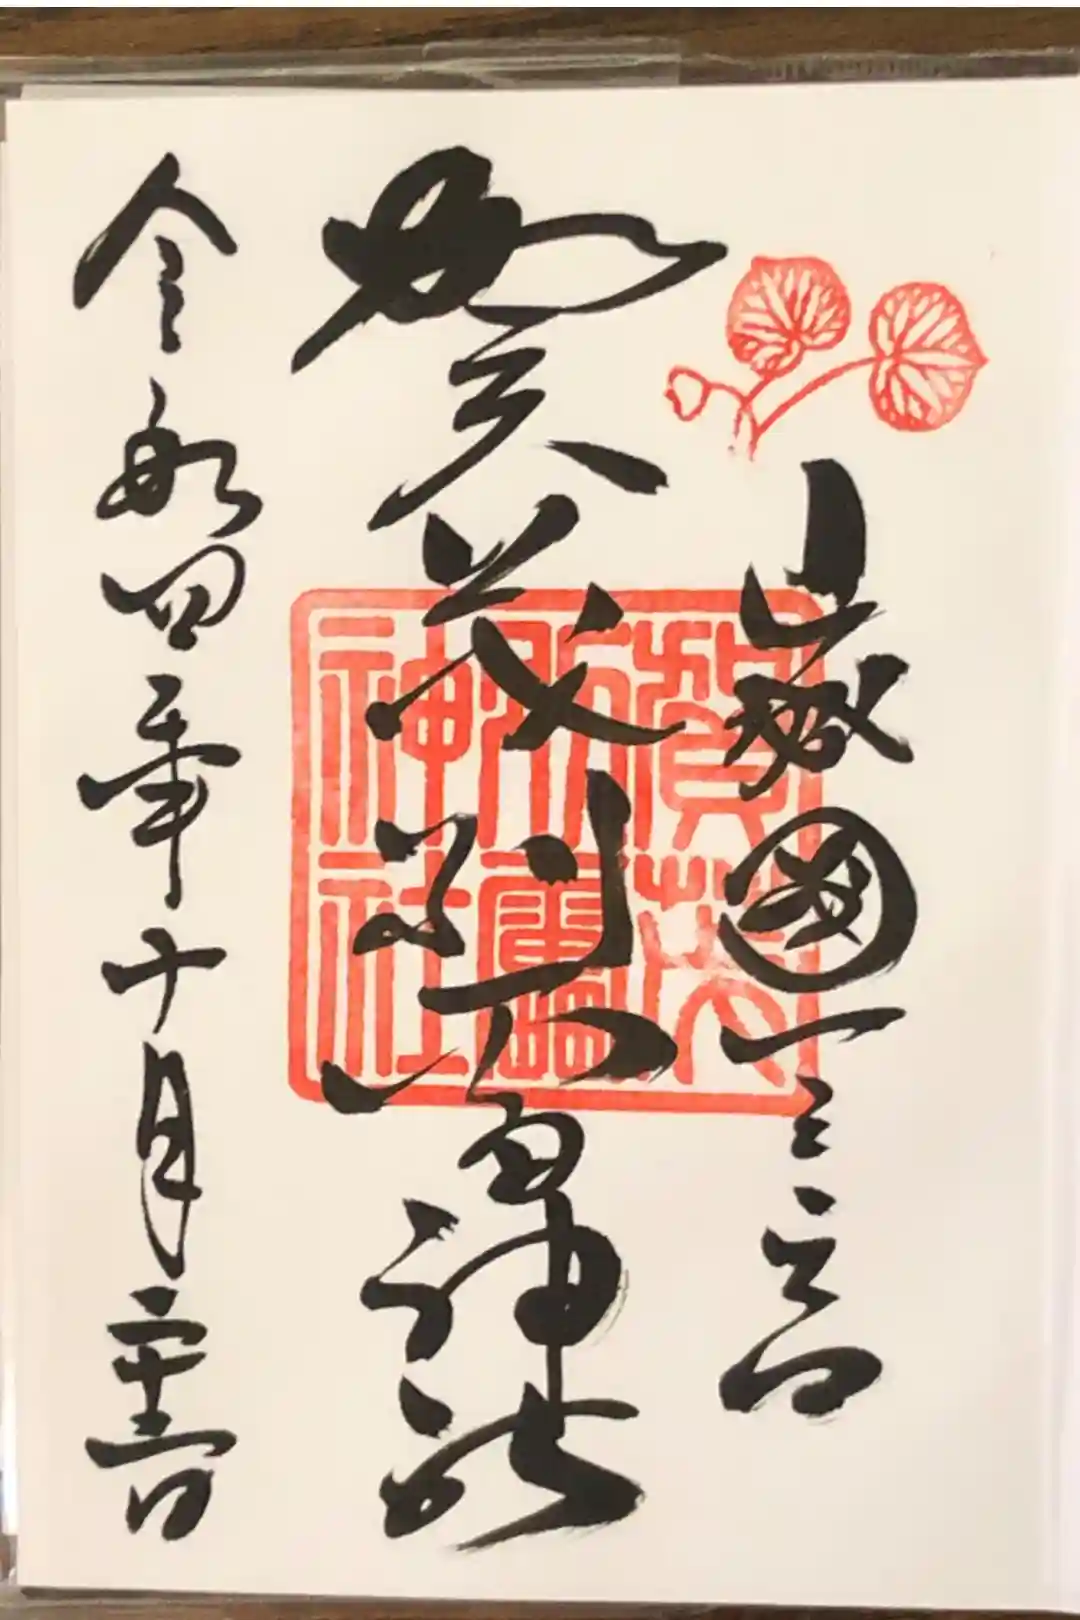 山城國一之宮
賀茂別雷神社
令和四年十月二十日
賀茂
別雷
神社